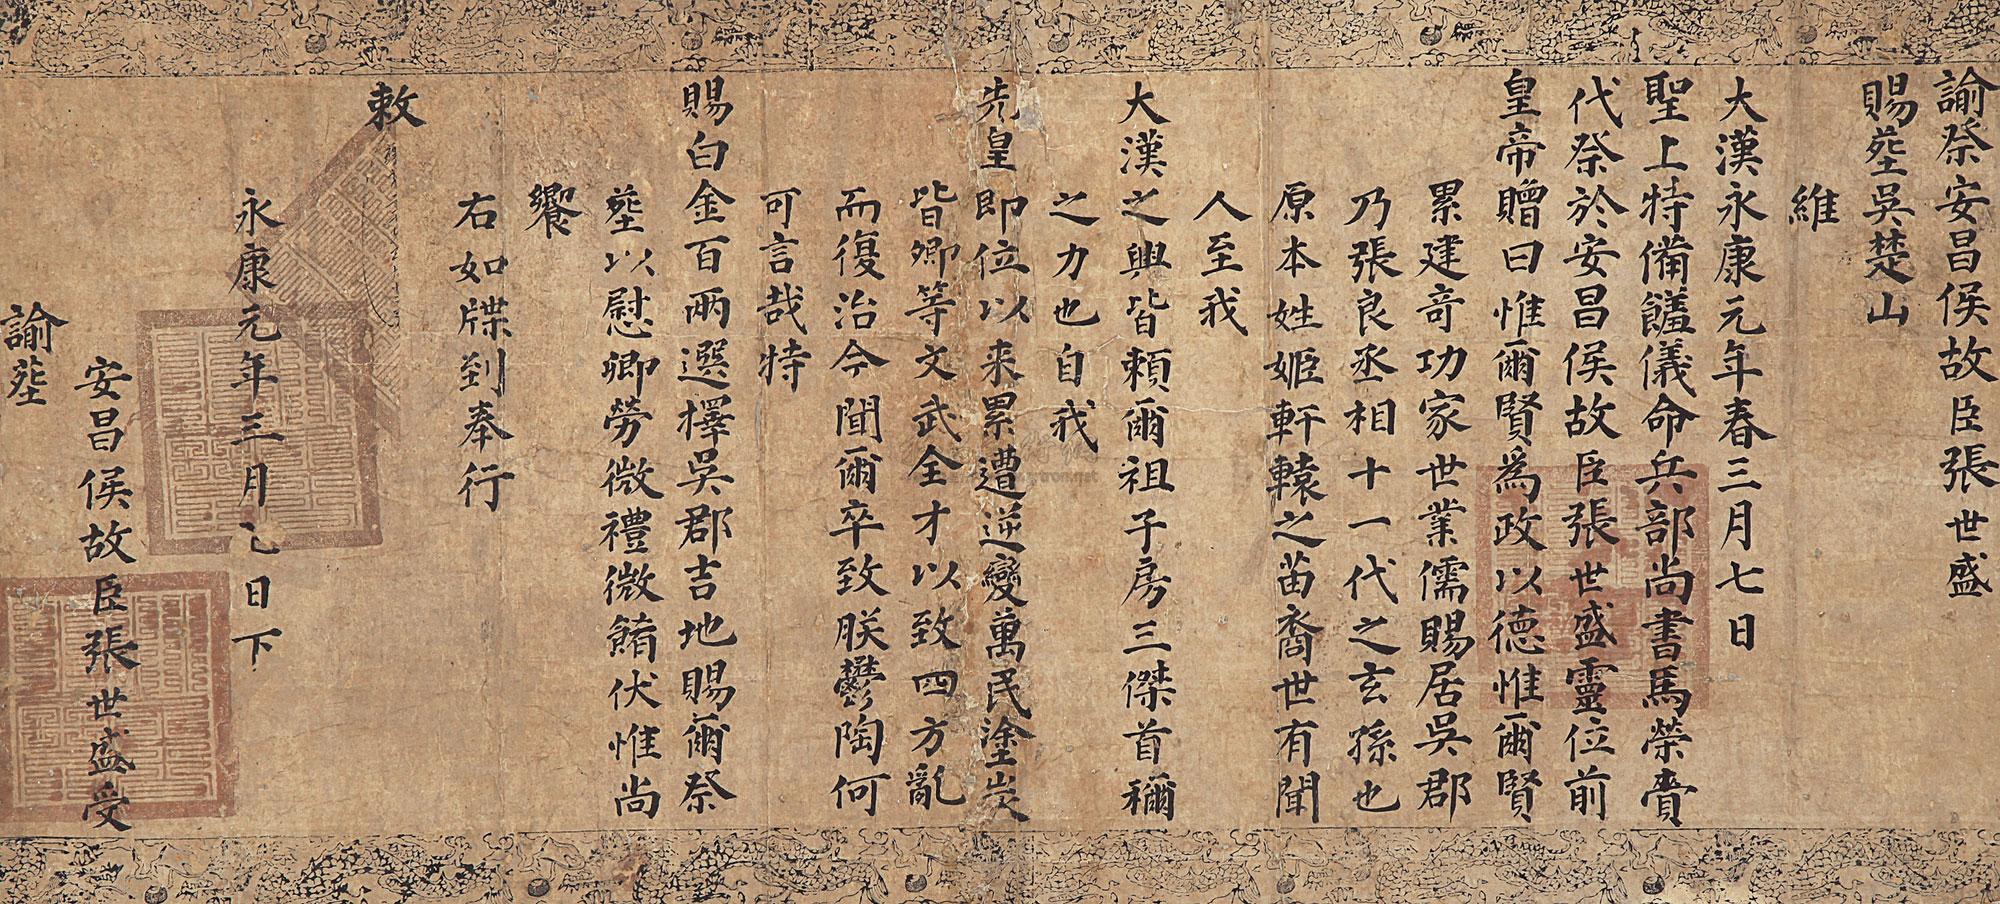 諭祭安昌侯故臣張世盛
賜塋吳楚山
維
大漢永康元年春三月七日
聖上特備饈儀命兵部尚書馬榮賫
代祭於安昌侯故臣張世盛靈位前
皇帝贈曰惟爾賢為政以德惟爾賢
累建竒功家世業儒賜居吳郡
乃張良丞相十一代之玄孫也
原本姓姬軒轅之苗裔世有聞
人至我
大漢之興皆賴爾祖子房三傑首稱
之力也自我
先皇即位以来累遭逆變萬民塗炭
皆卿等文武全才以致四方亂
而復治今聞爾卒致朕鬱陶何
可言哉特
賜白金百两選擇吳郡吉地賜爾祭
塋以慰卿勞微禮微餚伏惟尚
饗
右如牒到奉行
敕
永康元年三月乙日下
安昌侯故臣張世盛受
諭塋